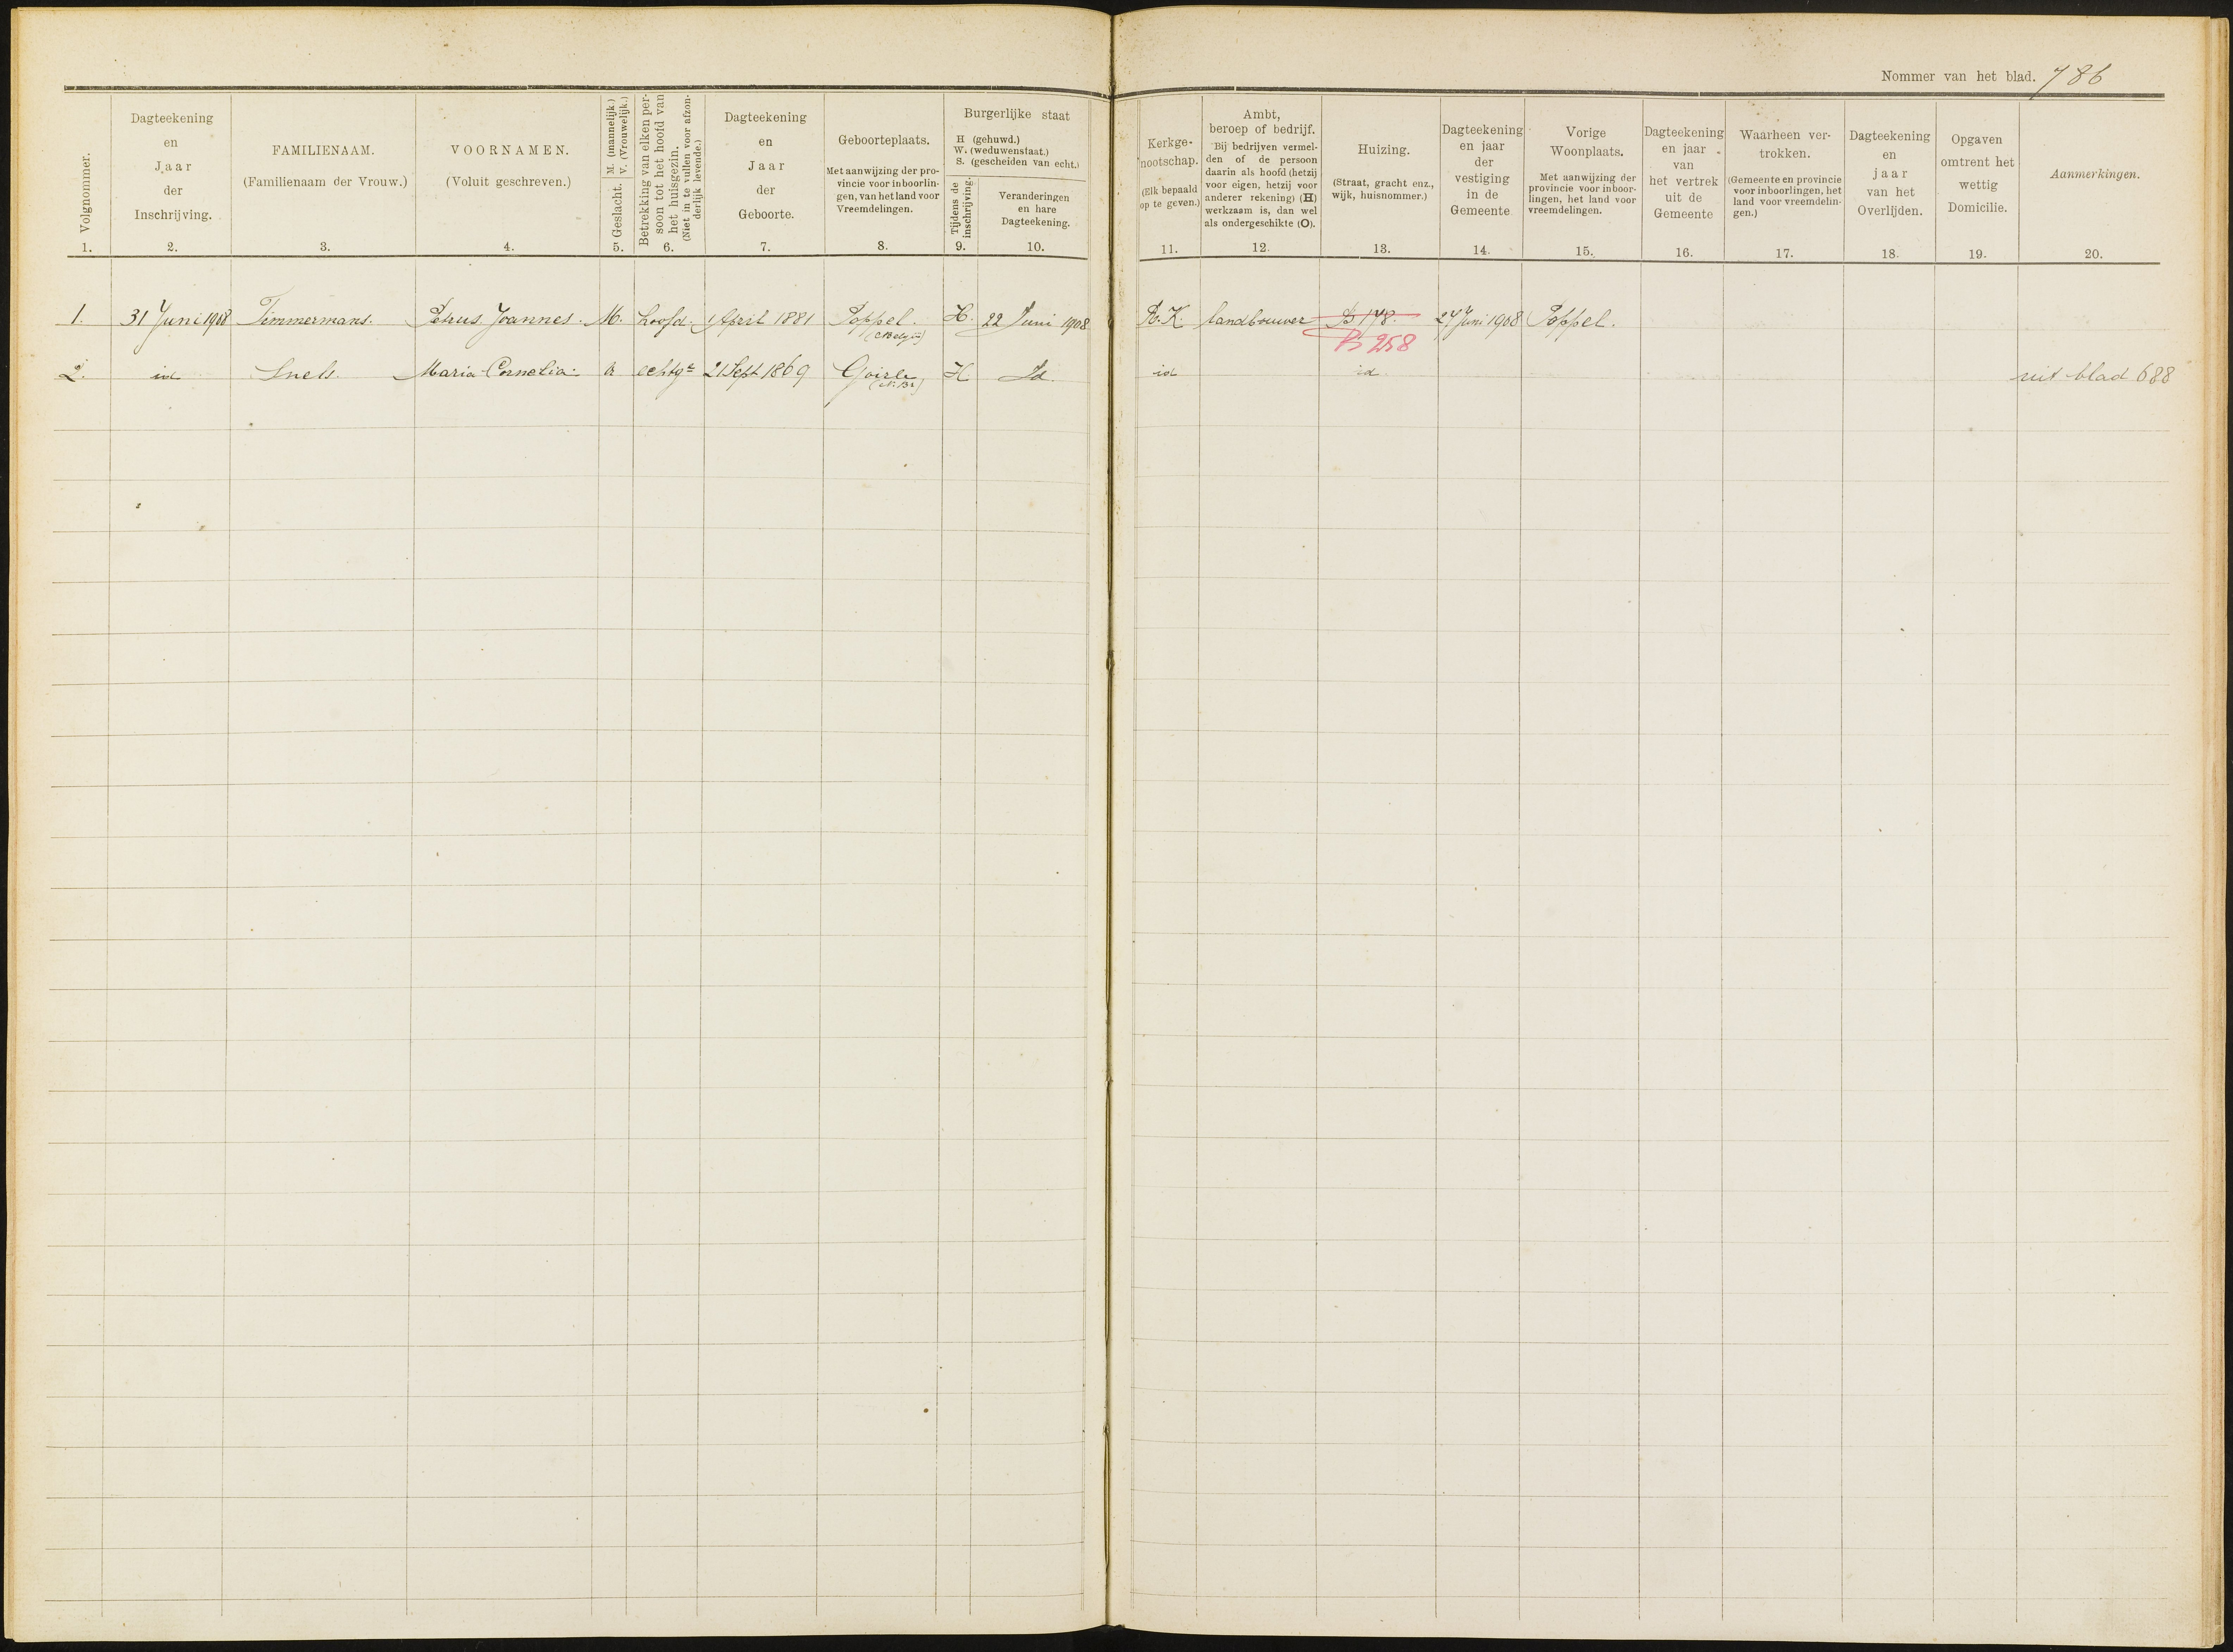 Nommer van het blad. 786
Volgnommer.
1.
Dagteekening
en
Jaar
der
Inschrijving.
2.
FAMILIENAAM.
(Familienaam der Vrouw.)
3.
VOORNAMEN.
(Voluit geschreven.)
4.
Geslacht. M. (mannelijk.)
V. (Vrouwelijk.)
5.
Betrekking van elken per-
soon tot het hoofd van
het huisgezin.
(Niet in te vullen voor afzon-
derlijk levende.)
6.
Dagteekening
en
Jaar
der
Geboorte.
7.
Geboorteplaats.
Met aanwijzing der pro-
vincie voor inboorlin-
gen, van het land voor
Vreemdelingen.
8.
Burgerlijke staat
H (gehuwd.)
W. (weduwenstaat.)
S. (gescheiden van echt.)
Tijdens de
inschrijving.
9.
Veranderingen
en hare
Dagteekening.
10.
Kerkge-
nootschap.
(Elk bepaald
op te geven.)
11.
Ambt,
beroep of bedrijf.
Bij bedrijven vermel-
den of de persoon
daarin als hoofd (hetzij
voor eigen, hetzij voor
anderer rekening) (H)
werkzaam is, dan wel
als ondergeschikte (O).
12.
Huizing.
(Straat, gracht enz.,
wijk, huisnommer.)
13.
Dagteekening
en jaar
der
vestiging
in de
Gemeente
14.
Vorige
Woonplaats.
Met aanwijzing der
provincie voor inboor-
lingen, het land voor
vreemdelingen.
15.
Dagteekening
en jaar
van
het vertrek
uit de
Gemeente
16.
Waarheen ver-
trokken.
(Gemeente en provincie
voor inboorlingen, het
land voor vreemdelin-
gen.)
17.
Dagteekening
en
jaar
van het
Overlijden.
18.
Opgaven
omtrent het
wettig
Domicilie.
19.
Aanmerkingen.
20.
1. 31 Juni 1908 Timmermans. Petrus Joannes. M. hoofd. 1 April 1881 Poppel. H. 22 Juni 1908 R.K landbouwer B 178. 27 Juni 1908 Poppel.
(België)
B 258
2. id Snels. Maria Cornelia echtge 21 Sept 1869 Goirle H Id id id uit blad 688
(N. Br)